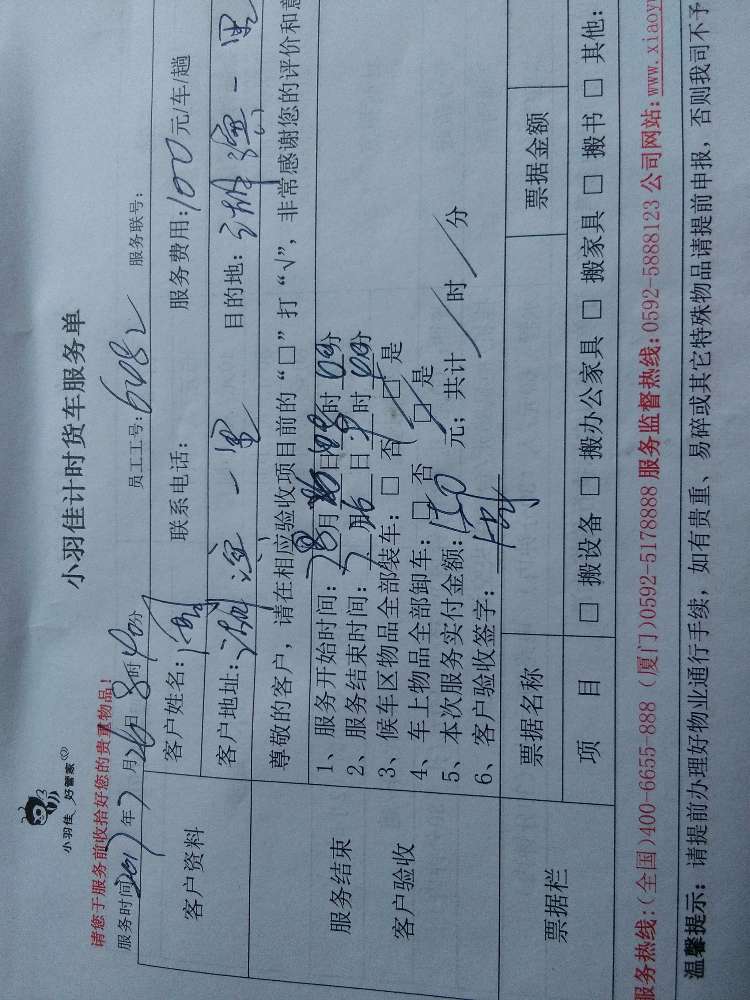 小羽佳 好管家
小羽佳计时货车服务单
请您于服务前收拾好您的贵重物品!
服务时间2017年7月26日8时40分 员工工号: 6082 服务联号:
客户资料
客户姓名: 联系电话: 服务费用:100元/车/趟
客户地址: 一里 目的地: 一里
服务结束
客户验收
尊敬的客户，请在相应验收项目前的“□”打“√”，非常感谢您的评价和意
1、服务开始时间: 月 日 时 分
2、服务结束时间: 月 日 时 分
3、候车区物品全部装车: □ 否 □ 是
4、车上物品全部卸车: □ 否 □ 是
5、本次服务实付金额: 150 元; 共计 / 时 / 分
6、客户验收签字:
票据栏
票据名称 票据金额
项 目 □ 搬设备 □ 搬办公家具 □ 搬家具 □ 搬书 □ 其他:
服务热线:(全国)400-6655-888 (厦门)0592-5178888 服务监督热线:0592-5888123 公司网站:www.xiaoyu
温馨提示: 请提前办理好物业通行手续，如有贵重、易碎或其它特殊物品请提前申报，否则我司不予